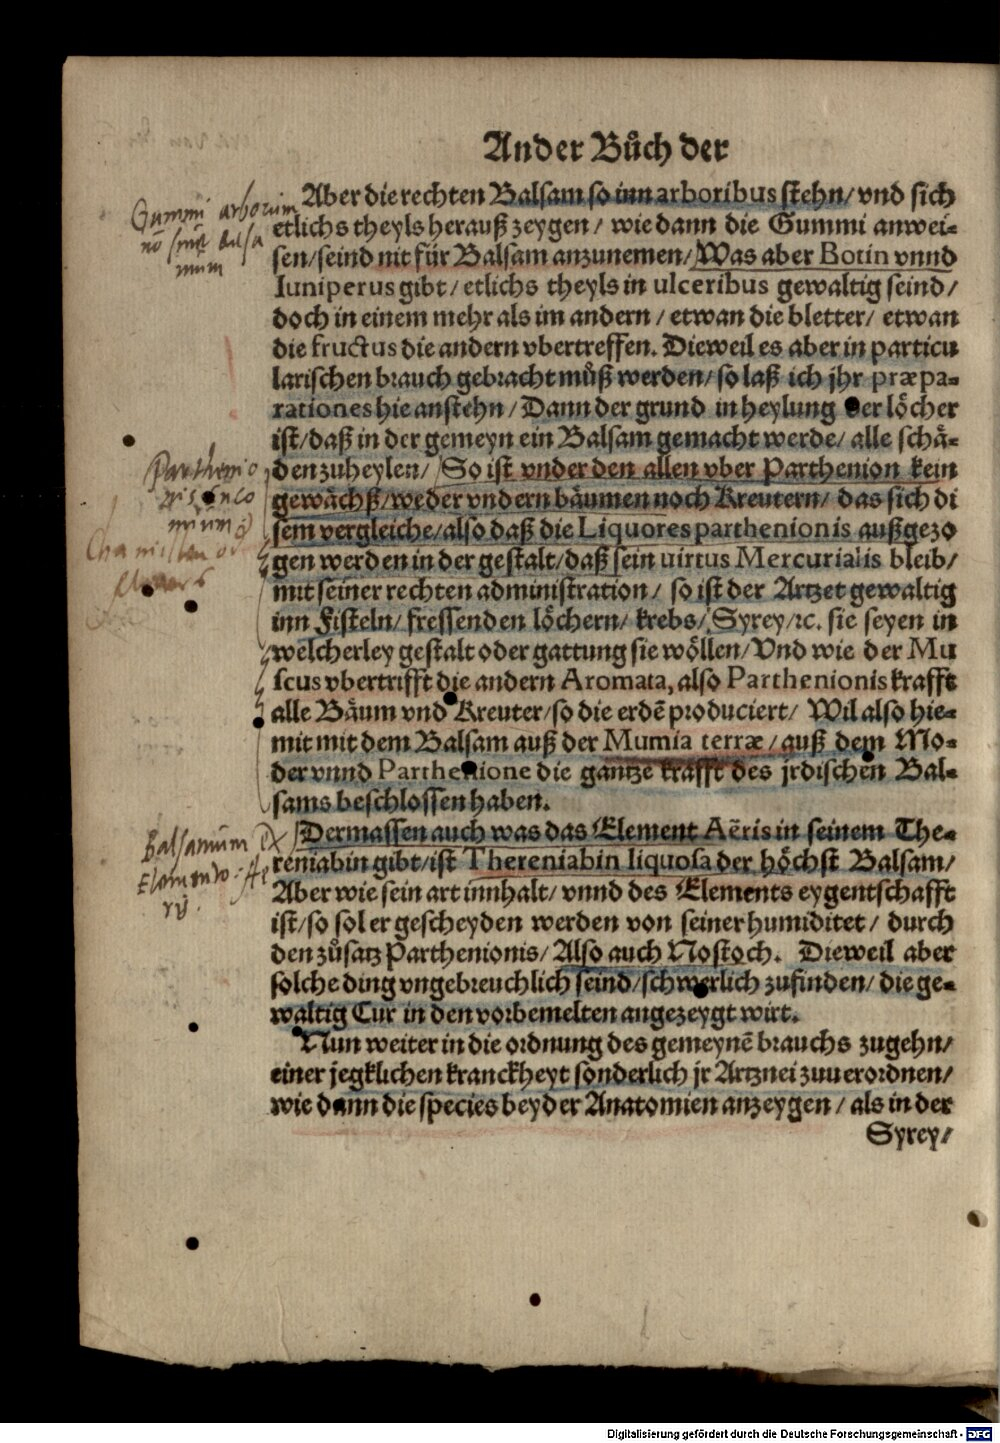 Ander Bůch der
Aber die rechten Balsam so inn arboribus stehn/ vnd sich
etlichs theyls herauß zeygen / wie dann die Gummi anwei-
sen/seind nit für Balsam anzunemen/ Was aber Botin vnnd
Iuniperus gibt/ etlichs theyls in ulceribus gewaltig seind/
doch in einem mehr als im andern / etwan die bletter/ etwan
die fructus die andern vbertreffen. Dieweil es aber in particu
larischen brauch gebracht můß werden/ so laß ich jhr præpa-
rationes hie anstehn / Dann der grund in heylung der löcher
ist/daß in der gemeyn ein Balsam gemacht werde/ alle schä-
den zuheylen/ So ist vnder den allen vber Parthenion kein
gewächß/weder vndern bäumen noch Kreutern/ das sich di
sem vergleiche/also daß die Liquores parthenionis außgezo
gen werden in der gestalt/daß sein uirtus Mercurialis bleib/
mit seiner rechten administration / so ist der Artzet gewaltig
inn Fisteln/ fressenden löchern/ krebs/ Syrey/ꝛc. sie seyen in
welcherley gestalt oder gattung sie wöllen/ Vnd wie der Mu
scus vbertrifft die andern Aromata, also Parthenionis krafft
alle Bäum vnd Kreuter/so die erdē produciert/ Wil also hie-
mit mit dem Balsam auß der Mumia terræ / auß dem Mo-
der vnnd Parthenione die gantze krafft des jrdischen Bal-
sams beschlossen haben.
Dermassen auch was das Element Aëris in seinem The-
reniabin gibt/ist Thereniabin liquosa der höchst Balsam/
Aber wie sein art innhalt/ vnnd des Elements eygentschafft
ist/so sol er gescheyden werden von seiner humiditet/ durch
den zůsatz Parthenionis/ Also auch Nostoch. Dieweil aber
solche ding vngebreuchlich seind/schwerlich zufinden/ die ge-
waltig Cur in den vorbemelten angezeygt wirt.
Nun weiter in die ordnung des gemeynē brauchs zugehn/
einer jegklichen kranckheyt sonderlich jr Artznei zuuerordnen/
wie dann die species beyder Anatomien anzeygen / als in der
Syrey/
Gummi arborum
nō sunt balsa
mum
Parthenio
nis
Balsamum ex
Elemento Ae
rÿ.
Digitalisierung gefördert durch die Deutsche Forschungsgemeinschaft - DFG